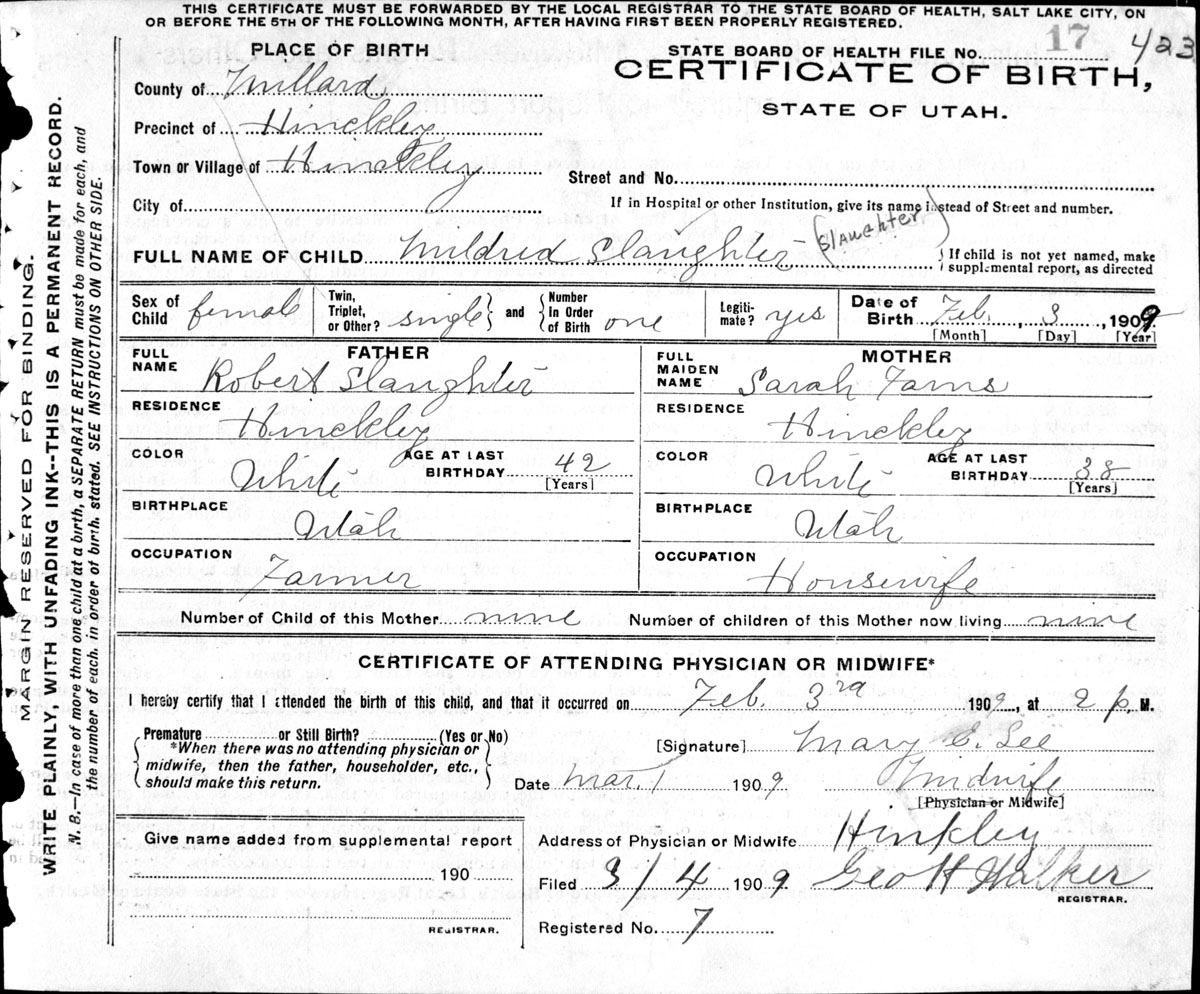 THIS CERTIFICATE MUST BE FORWARDED BY THE LOCAL REGISTRAR TO THE STATE BOARD OF HEALTH, SALT LAKE CITY, ON
OR BEFORE THE 5TH OF THE FOLLOWING MONTH, AFTER HAVING FIRST BEEN PROPERLY REGISTERED.
PLACE OF BIRTH
County of Millard
Precinct of Hinckley
Town or Village of Hinckley
City of
STATE BOARD OF HEALTH FILE No. 17 423
CERTIFICATE OF BIRTH,
STATE OF UTAH.
Street and No.
If in Hospital or other Institution, give its name instead of Street and number.
FULL NAME OF CHILD Mildred Slaughter (Slaughter)
If child is not yet named, make
supplemental report, as directed
Sex of Child female
Twin, Triplet, or Other? single and Number In Order of Birth one
Legiti-mate? yes
Date of Birth Feb. 3, 1909
[Month] [Day] [Year]
FATHER
FULL NAME Robert Slaughter
RESIDENCE
Hinckley
COLOR White AGE AT LAST BIRTHDAY 42
[Years]
BIRTHPLACE
Utah
OCCUPATION
Farmer
MOTHER
FULL MAIDEN NAME Sarah
RESIDENCE
Hinckley
COLOR White AGE AT LAST BIRTHDAY 38
[Years]
BIRTHPLACE
Utah
OCCUPATION
Housewife
Number of Child of this Mother nine Number of children of this Mother now living nine
CERTIFICATE OF ATTENDING PHYSICIAN OR MIDWIFE*
I hereby certify that I attended the birth of this child, and that it occurred on Feb. 3rd 1909, at 2 p. M.
Premature or Still Birth? (Yes or No)
*When there was no attending physician or
midwife, then the father, householder, etc.,
should make this return.
[Signature] Mary E. Lee
Date Mar. 1 1909 Midwife
[Physician or Midwife]
Give name added from supplemental report
190
REGISTRAR.
Address of Physician or Midwife Hinkley
Filed 3/4 1909 Geo H Walker
REGISTRAR.
Registered No. 7
MARGIN RESERVED FOR BINDING.
WRITE PLAINLY, WITH UNFADING INK--THIS IS A PERMANENT RECORD.
N. B.—In case of more than one child at a birth, a SEPARATE RETURN must be made for each, and
the number of each, in order of birth, stated. SEE INSTRUCTIONS ON OTHER SIDE.